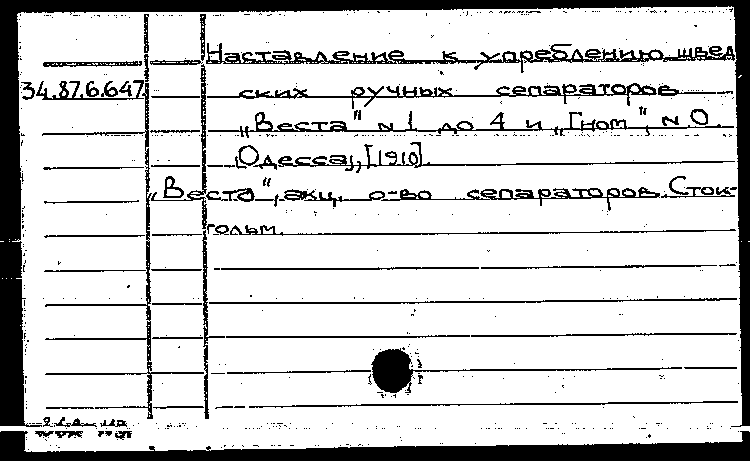 Наставление к упреблению швед
34.87.6.647. ских ручных сепараторов
„Веста" N 1 до 4 и „Гном", N 0.
[Одесса], [1910].
„Веста", акц. о-во сепараторов. Сток-
гольм.